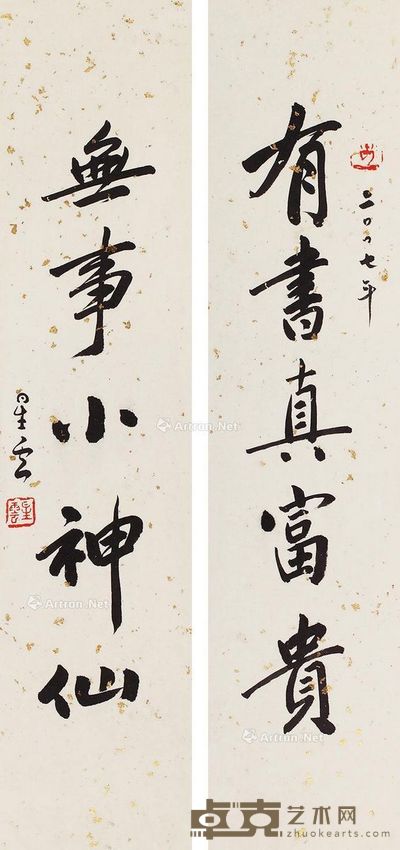 有書真富貴
二〇〇七年
無事小神仙
星雲
星雲
Artron.Net
Artron.Net
Artron.Net
卓克艺术网
zhuokearts.com